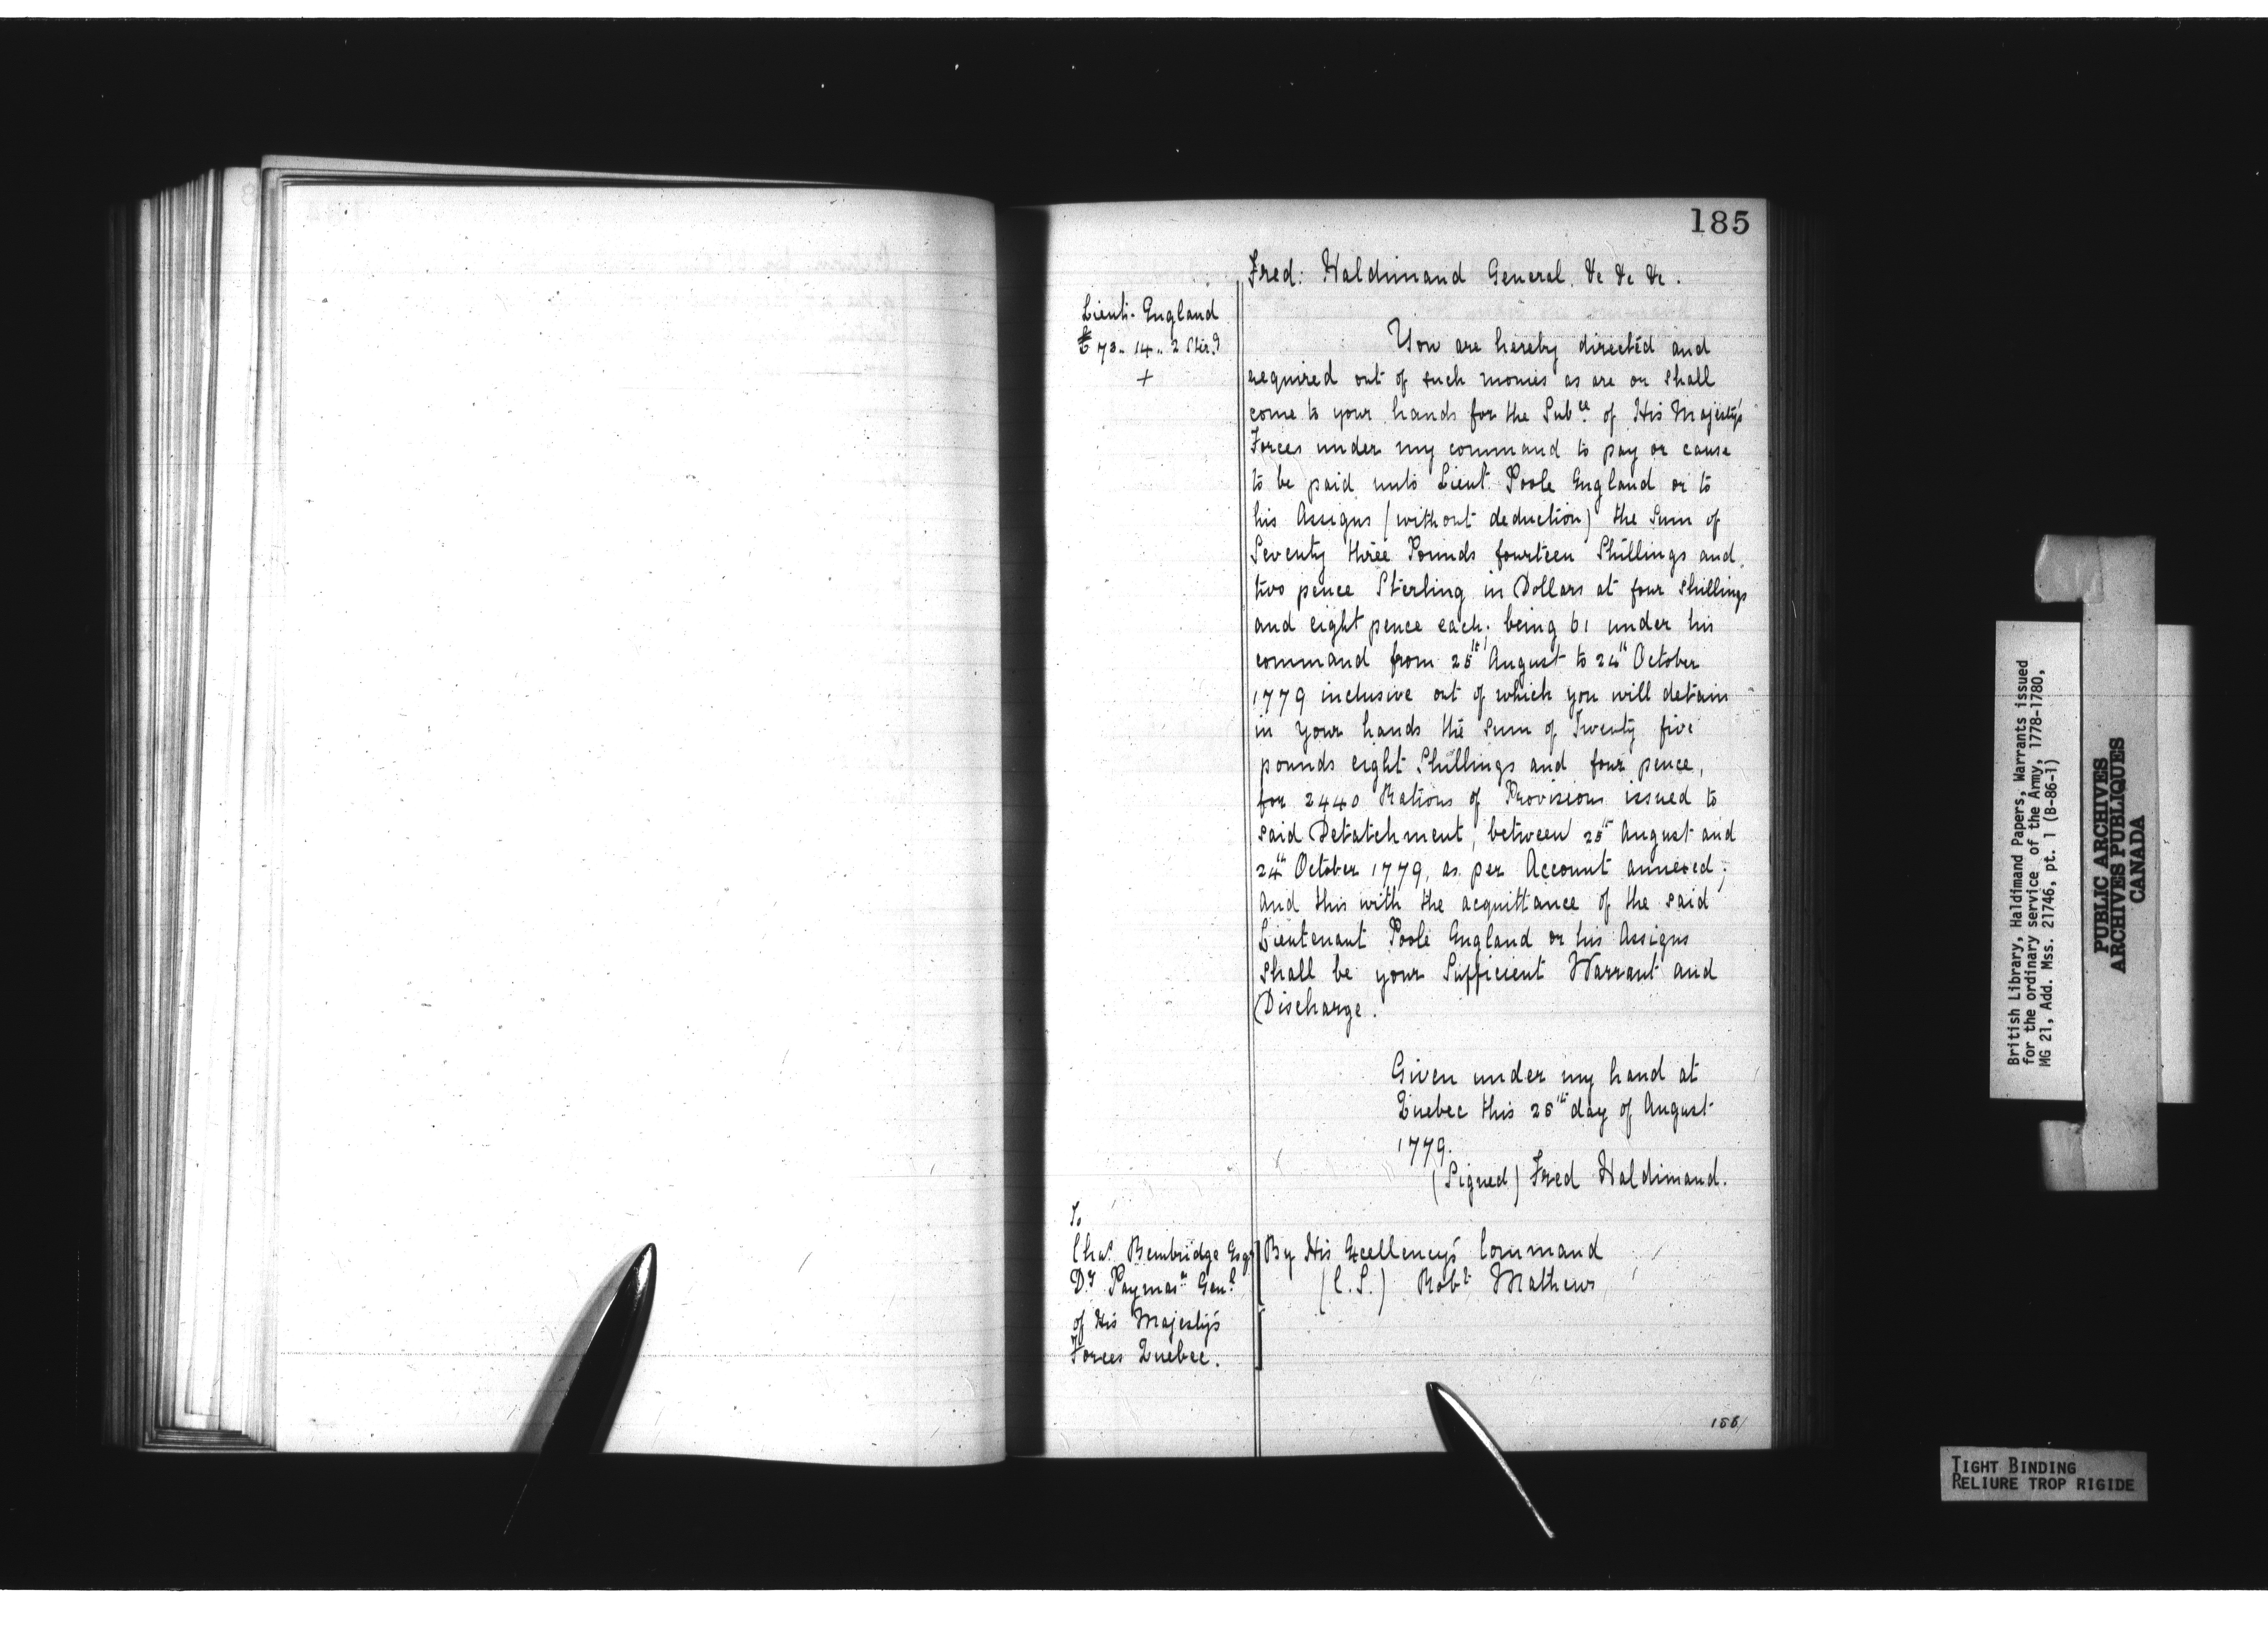 185
Fred: Haldimand General. &c &c &c.
Lieut. England
£ 73. 14. 2 Ster.g
+
You are hereby directed and
required out of such monies as are or shall
come to your hands for the Subce of His Majesty's
Forces under my command to pay or cause
to be paid unto Lieut. Poole England or to
his Assigns (without deduction) the Sum of
Seventy three Pounds fourteen Shillings and
two pence Sterling in Dollars at four Shillings
and eight pence each; being 61 under his
command from 25th August to 24th October
1779 inclusive out of which you will detain
in your hands the sum of Twenty five
pounds eight Shillings and four pence,
for 2440 Rations of Provisions issued to
said Detatchment, between 25th August and
24th October 1779, as per Account annexed;
and this with the acquittance of the said
Lieutenant Poole England or his Assigns
shall be your Sufficient Warrant and
Discharge.
Given under my hand at
Quebec this 25th day of August
1779.
(Signed) Fred Haldimand.
To
Chas. Bembridge Esqr
Dy Paymasr Genl
of His Majesty's
Forces Quebec.
By His Excellency's Command
(C.S.) Robt Mathews
British Library, Haldimand Papers, Warrants issued
for the ordinary service of the Army, 1778-1780,
MG 21, Add. Mss. 21746, pt. 1 (B-86-1)
PUBLIC ARCHIVES
ARCHIVES PUBLIQUES
CANADA
TIGHT BINDING
RELIURE TROP RIGIDE